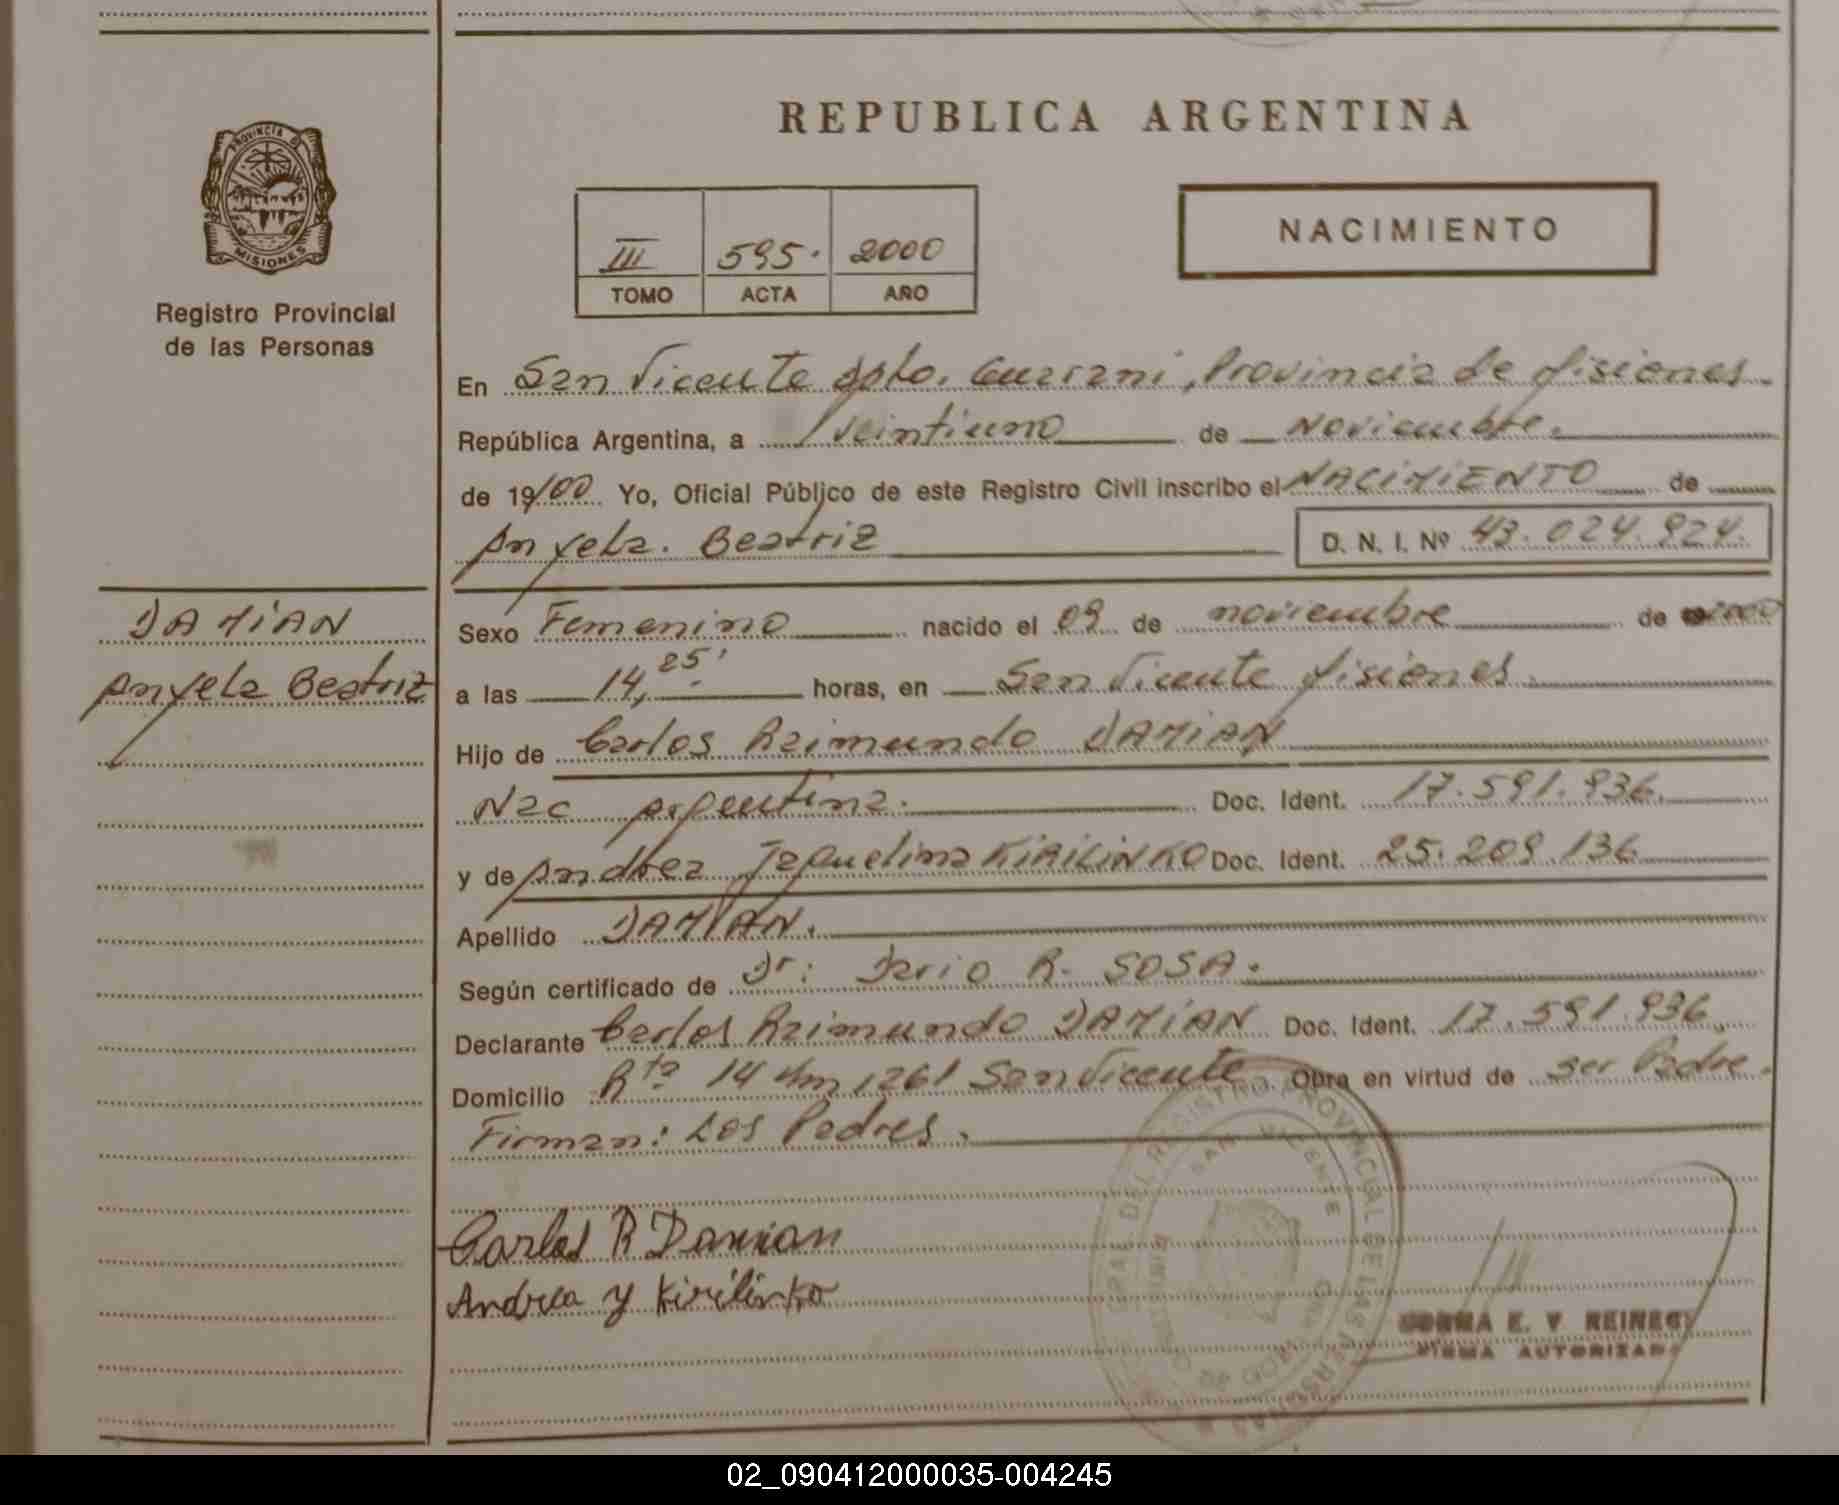 REPUBLICA ARGENTINA
PROVINCIA DE
MISIONES
Registro Provincial
de las Personas
NACIMIENTO
III 595. 2000
TOMO ACTA AÑO
En San Vicente Dpto. Guarani, Provincia de Misiones.
República Argentina, a veintiuno de Noviembre.
de 19/00 Yo, Oficial Público de este Registro Civil inscribo el NACIMIENTO de
Anyela. Beatriz D. N. I. Nº 43.024.924.
DAMIAN
Anyela Beatriz
Sexo Femenino nacido el 09 de noviembre de 2000
a las 14,25' horas, en San Vicente Misiones.
Hijo de Carlos Raimundo DAMIAN
Nac Argentina. Doc. Ident. 17.591.936.
y de Andrea Jaquelina KIRILINKO Doc. Ident. 25.209.136
Apellido DAMIAN.
Según certificado de Dr: Dario R. SOSA.
Declarante Carlos Raimundo DAMIAN Doc. Ident. 17.591.936,
Domicilio Rta 14 Km 1261 San Vicente Obra en virtud de ser Padre.
Firman: Los Padres.
Carlos R Damian
Andrea y Kirilinko
DEL REGISTRO PROVINCIAL DE LAS PERSONAS
SAN VICENTE
NORMA E. V. REINECY
FIRMA AUTORIZADA
02_090412000035-004245